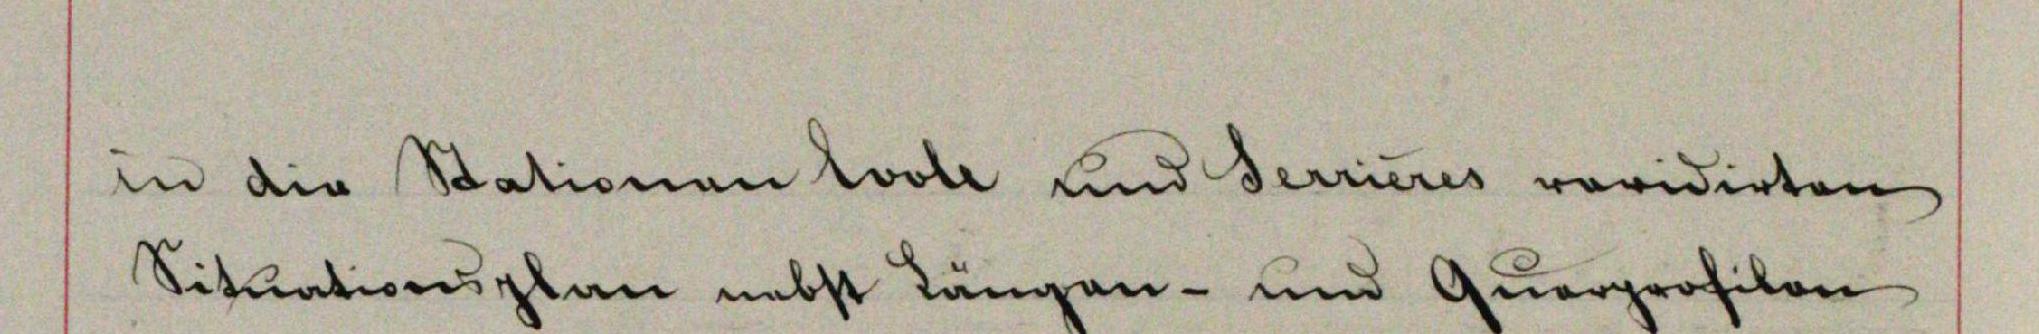 in die Stationen Evole und Serrières revidirten
Situationsplan nebst Längen- und Querprofilen